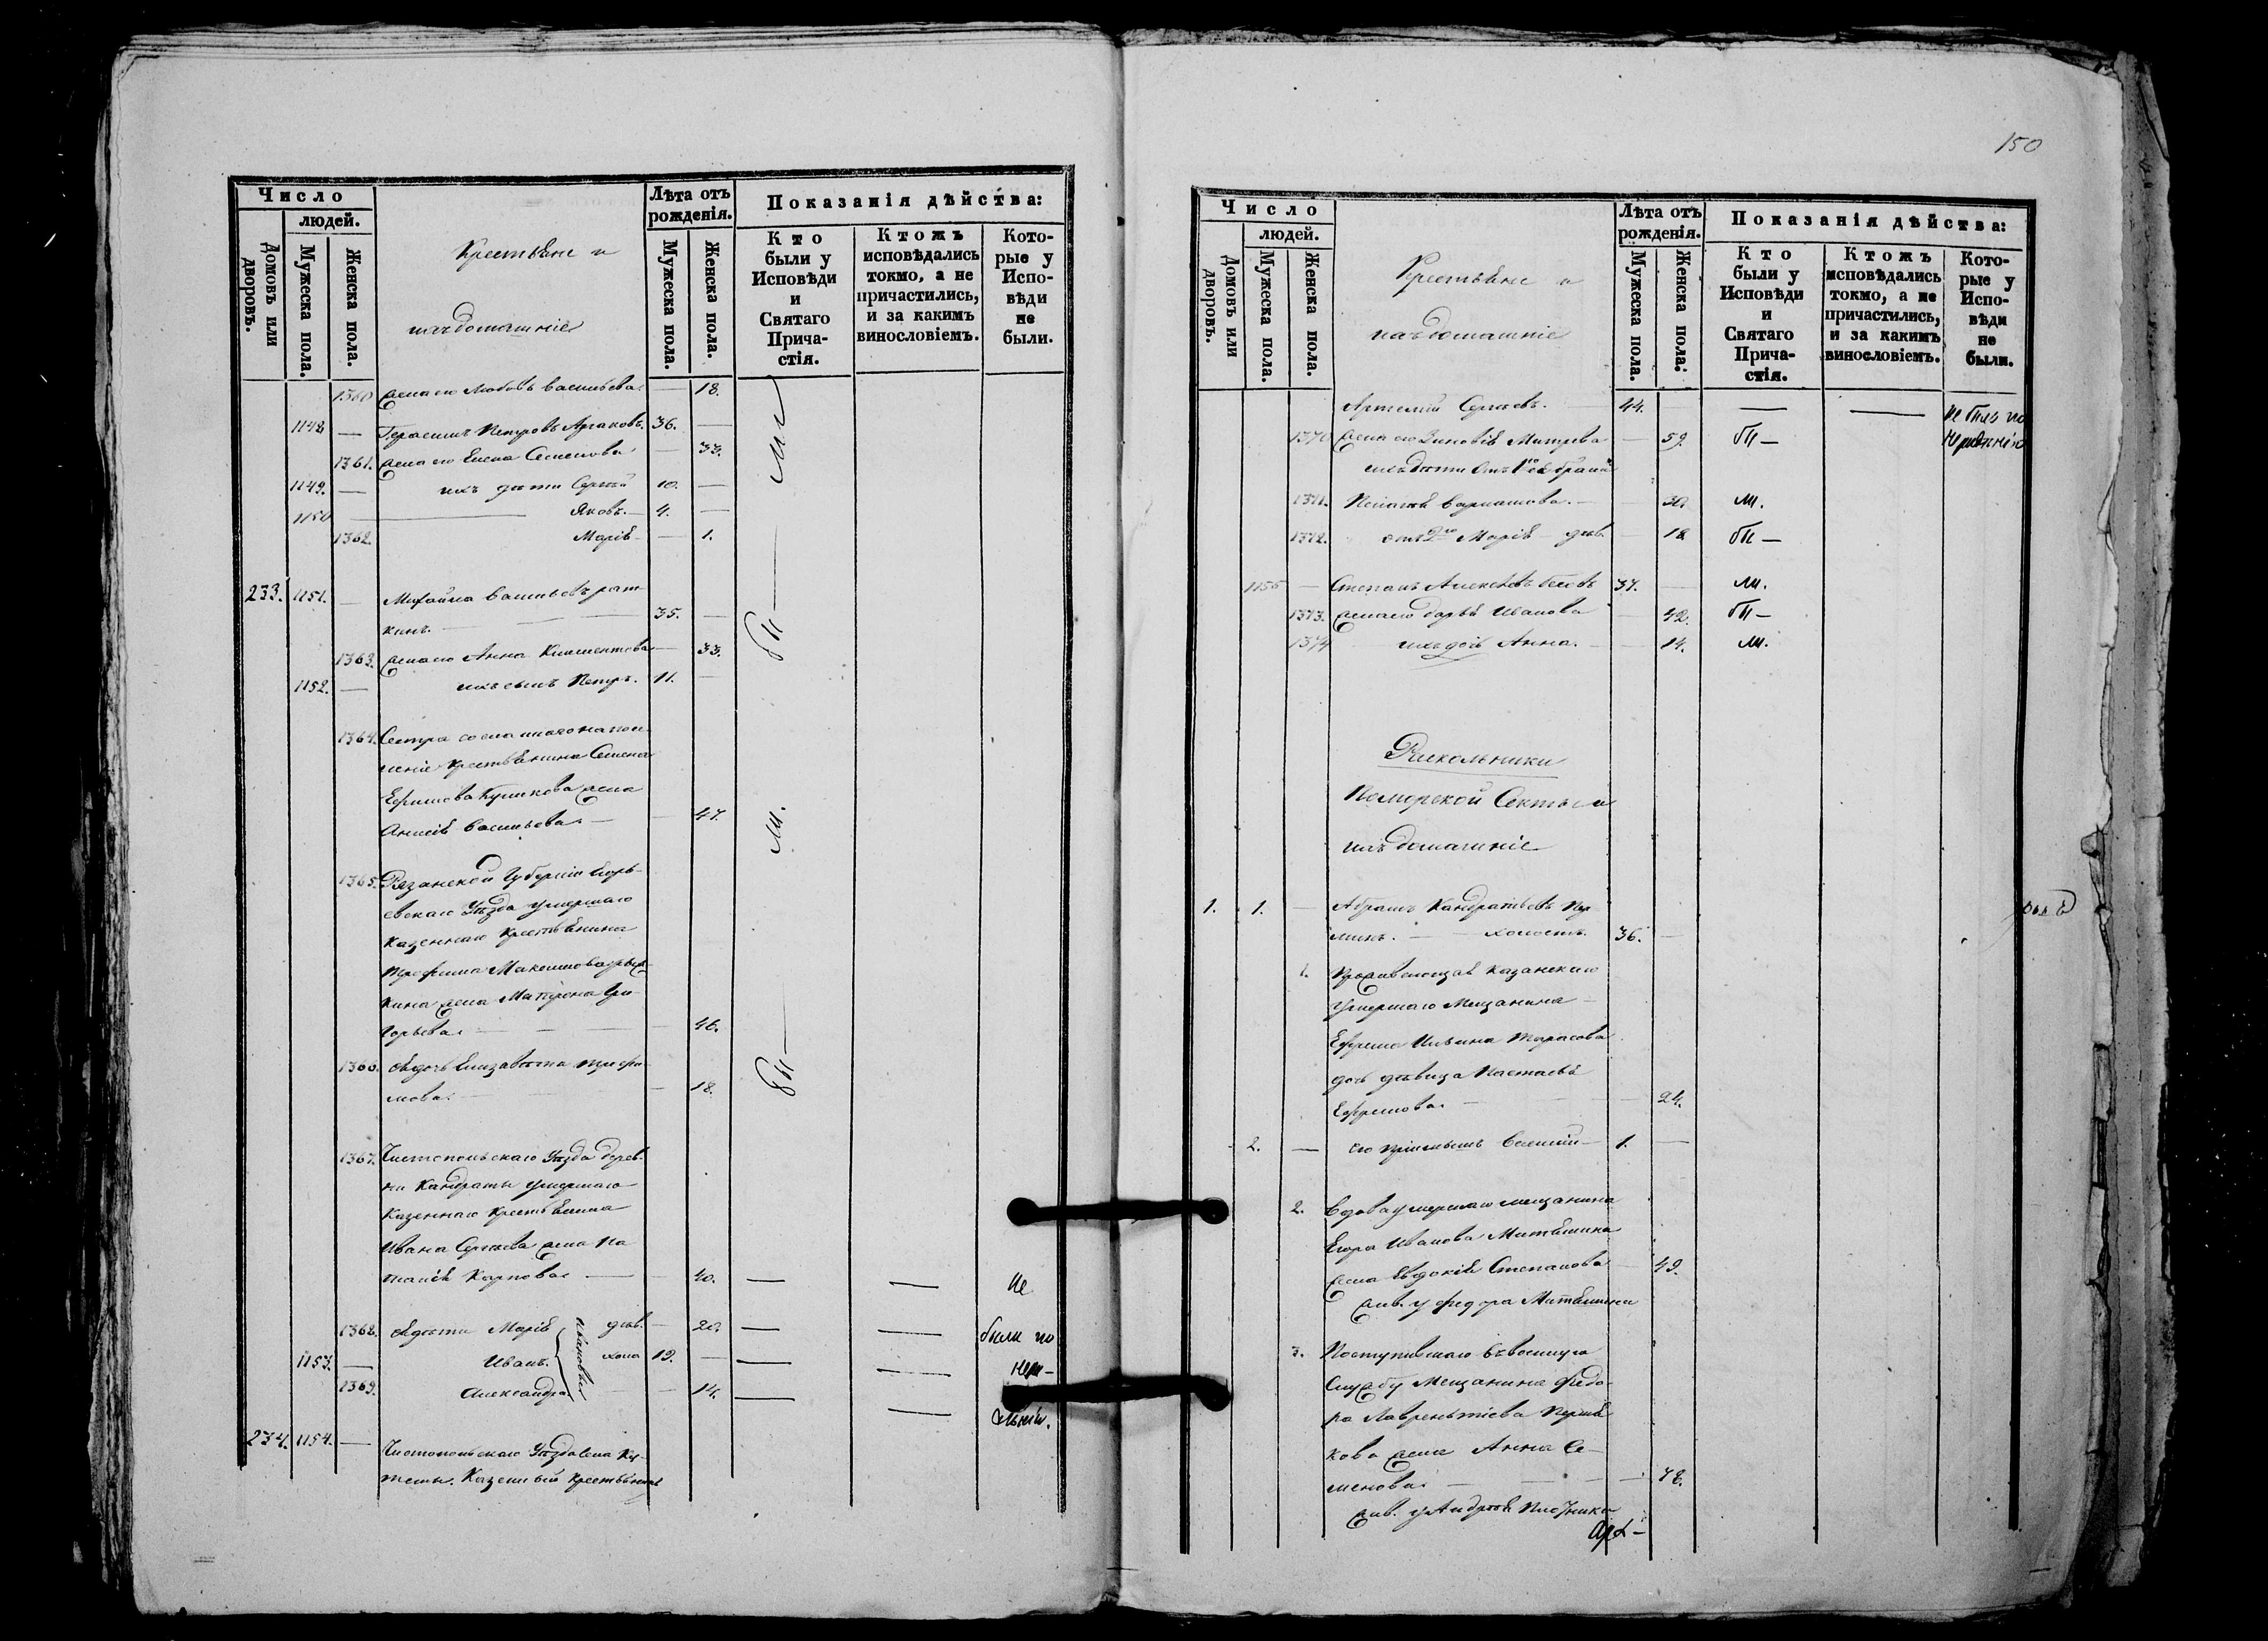 Число
людей.
Домовъ или дворовъ.
Мужеска пола.
Женска пола.
Крестьяне и
ихъ домашніе
Лѣта отъ рожденія.
Мужеска пола.
Женска пола.
Показанія дѣйства:
Кто были у Исповѣди и Святаго Прича-стія.
Ктожъ исповѣдались токмо, а не причастились, и за какимъ винословіемъ.
Кото-рые у Испо-вѣди не были.
1360 жена его Любовь Васильева 18.
1148 — Герасимъ Петровъ 36. —
1361. жена его Елена Семенова — 33.
1149. — ихъ дѣти Сергѣй 10. —
1150 — Яковъ. 4. —
1362. Марія — 1.
233. 1151. — Михайла Васильевъ
кинъ. — 35. —
1363. жена его Анна Климентова — 33.
1152. — ихъ сынъ Петръ. 11. —
бп —
1364. Сестра сосланнаго на посе-
леніе Крестьянина Семена
Ефимова жена
Анисія Васильева — 47.
м.
1365. Рязанской Губерніи Егорь-
евскаго Уѣзда умершаго
Казеннаго Крестьянина
Трофима Максимова
кина жена Матрена Гри-
горьева — 46.
1366. ея дочь Елизавета Трофи-
мова — 18.
бп —
1367. Чистопольскаго Уѣзда дерев-
ни Кандраты умершаго
Казеннаго Крестьянина
Ивана Сергѣева жена На
талія Карпова — 40. — — Не
1368. ея дѣти Марія дѣв. — 20. — — были по
1153. — Иванъ. холо 19. — — — нера-
1369. Александра — 14. — — дѣнію.
Ивановы
234. 1154. — Чистопольскаго Уѣзда села
Казенный Крестьянинъ
150
Число
людей.
Домовъ или дворовъ.
Мужеска пола.
Женска пола.
Крестьяне и
ихъ домашніе
Лѣта отъ рожденія.
Мужеска пола.
Женска пола.
Показанія дѣйства:
Кто были у Исповѣди и Святаго Прича-стія.
Ктожъ исповѣдались токмо, а не причастились, и за какимъ винословіемъ.
Кото-рые у Испо-вѣди не были.
Артемій Сергѣевъ. 44. — — — Не былъ по
1370 жена его Зиновія Митрева — 59. бп — нерадѣнію
ихъ дѣти отъ 1го брака
1371. Пелагея Варламова. — 30. м.
1372. отъ 2го Марія дѣв. — 18 бп —
1155 — Степанъ Алексѣевъ 37. — м.
1373. жена его Дарья Иванова — 42. бп —
1374 ихъ дочь Анна. — 14. м.
Раскольники
Поморской Секты и
ихъ домашніе
1. 1. — Абрамъ Кандратьевъ
холостъ. 36. —
1. Проживающая Казанскаго
умершаго Мещанина
Ефрема Ильина Тарасова
дочь дѣвица Настасья
Ефремова — 24.
2. — его пріемышъ Василій — 1. —
2. Вдова умершаго мещанина
Егора Иванова Митяшина
жена Евдокія Степанова — 49.
жив. у Федора Митяшина
3. Поступившаго въ военную
Службу Мещанина Федо-
ра Лаврентіева
кова жена Анна Се-
менова — 78.
жив. у Андрея